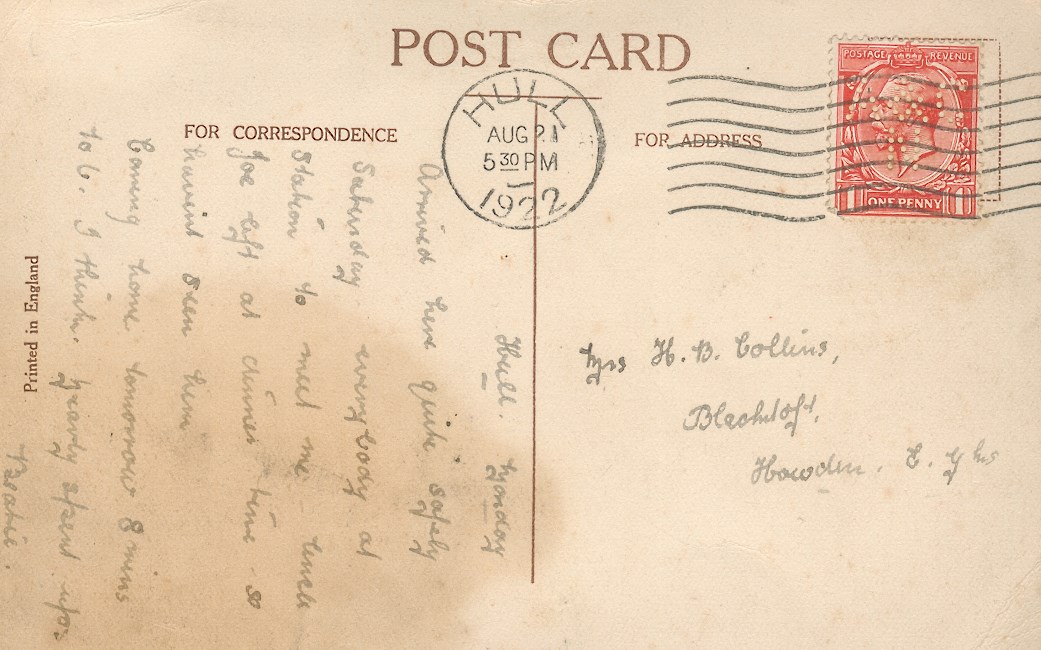 POST CARD
FOR CORRESPONDENCE
FOR ADDRESS
HULL
AUG 21
5 30 PM
1922
POSTAGE REVENUE
ONE PENNY
Printed in England
Hull. Monday
Arrived here quite safely
Saturday everybody at
Station to meet me
Joe left at dinner time so
havent seen him
Coming home tomorrow 8 mins
to 6. I think. Nearly spent up:
Mrs H. B. Collins,
Blacktoft,
Howden. E. Yks